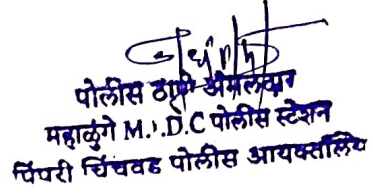 पोलीस ठाणे अंमलदार
महाळुंगे M.I.D.C पोलीस स्टेशन
पिंपरी चिंचवड पोलीस आयुक्तालय